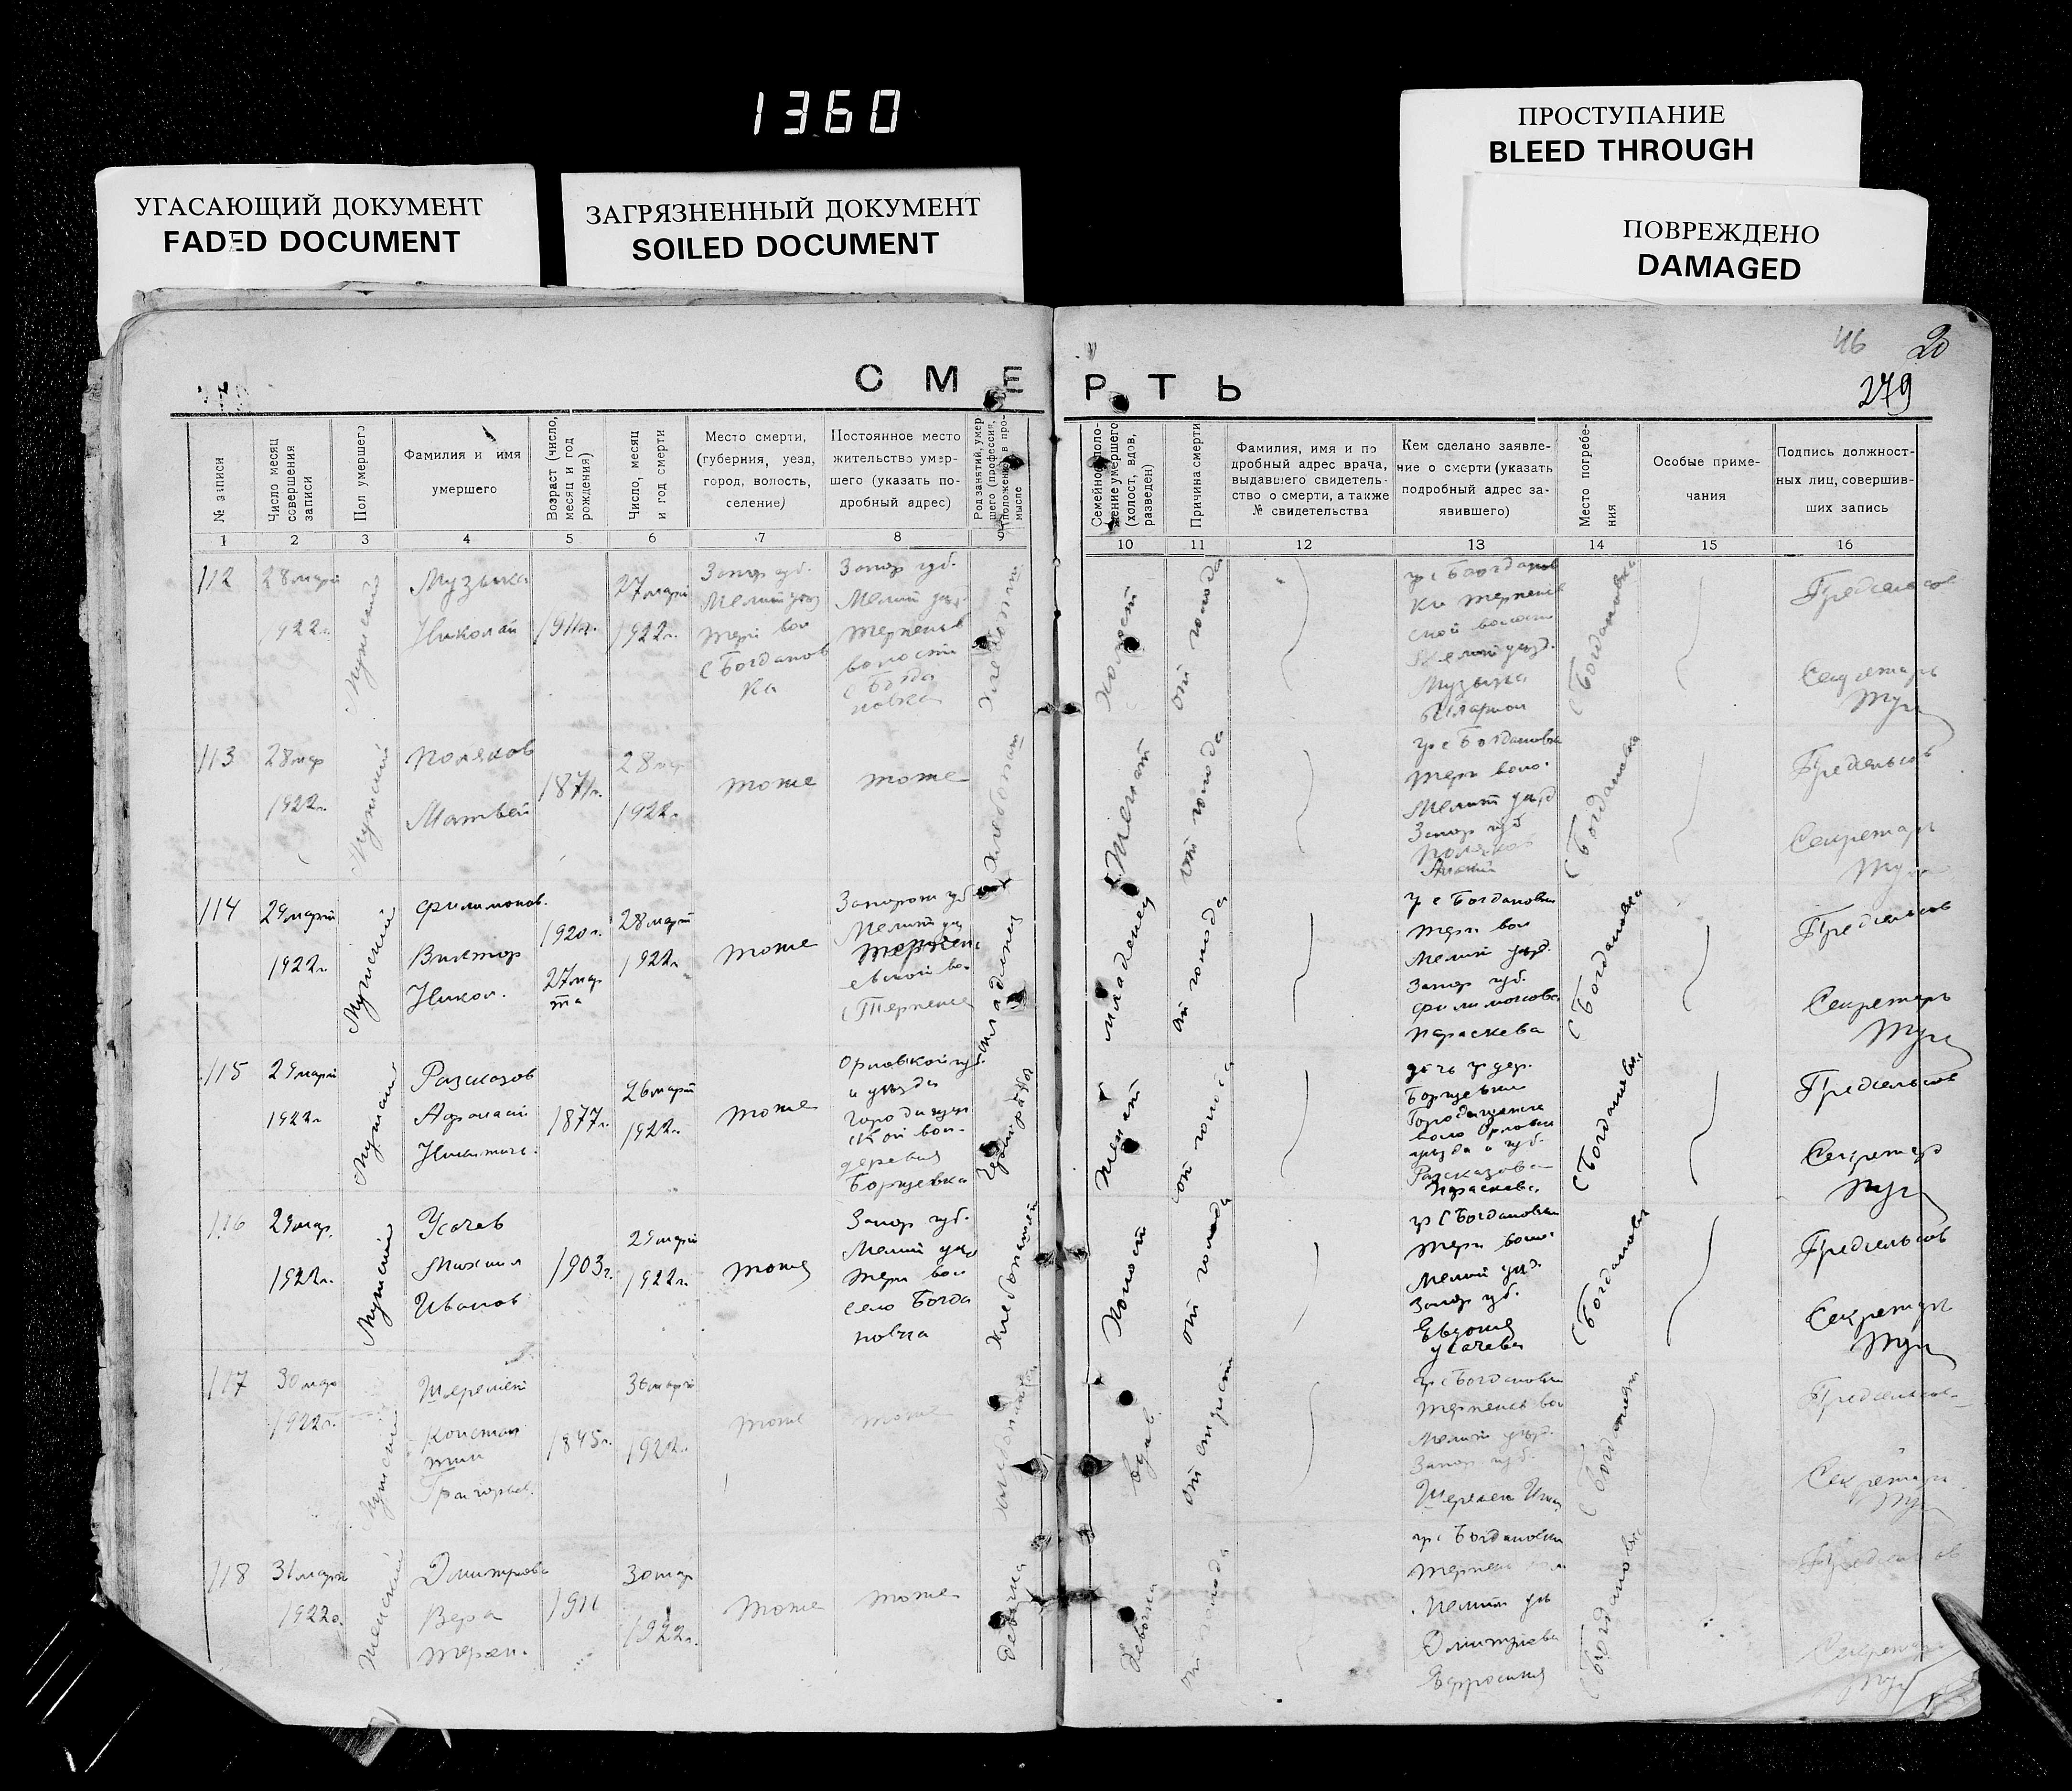 1360
ПРОСТУПАНИЕ
BLEED THROUGH
УГАСАЮЩИЙ ДОКУМЕНТ
FADED DOCUMENT
ЗАГРЯЗНЕННЫЙ ДОКУМЕНТ
SOILED DOCUMENT
ПОВРЕЖДЕНО
DAMAGED
46
20
279
СМЕРТЬ
№ записи
Число месяц
совершения
записи
Пол умершего
Фамилия и имя
умершего
Возраст (число,
месяц и год
рождения)
Число, месяц
и год смерти
Место смерти,
(губерния, уезд,
город, волость,
селение)
Постоянное место
жительство умер-
шего (указать по-
дробный адрес)
Род занятий, умер
шего (профессия,
положение в про-
мысле
Семейное поло-
жение умершего
(холост, вдов,
разведен)
Причина смерти
Фамилия, имя и по
дробный адрес врача,
выдавшего свидетель-
ство о смерти, а также
№ свидетельства
Кем сделано заявле-
ние о смерти (указать
подробный адрес за-
явившего)
Место погребе-
ния
Особые приме-
чания
Подпись должност-
ных лиц, совершив-
ших запись
1 2 3 4 5 6 7 8 9 10 11 12 13 14 15 16
112
28 март
1922 г.
Мужской
Музыка
Николай
1911 г.
27 март
1922 г.
Запор губ.
Мелит уез
Терп вол
с Богданов
ка
Запор губ.
Мелит уез.
Терпеньев
волости
с Богда
новка
Хлебопаш
Холост
от голода
гр с Богданов
ки Терпень
ской волост
Мелит уезд.
Музыка
с Богдановка
Предсельсов
Секретарь
113
28 мар
1922 г.
Мужской
Поляков
Матвей
1871 г.
28 мар
1922 г.
тоже
тоже
Хлебопаш
Женат
от голода
гр с Богдановки
Терп воло.
Мелит уезд
Запор губ
Поляков
с Богдановка
Предсельсов
Секретарь
114
29 март
1922 г.
Мужской
Филимонов.
Виктор
Никол.
1920 г.
27 мар
та
28 март
1922 г.
тоже
Запорож губ
Мелит уез
Терпень
евской во.
с Терпенье
младенец
младенец
от голода
гр с Богдановки
Терп вол
Мелит уезд.
Запор губ.
Филимонова
Параскева
с Богдановка
Предсельсов
Секретарь
115
29 март
1922 г.
Мужской
Разсказов
Афонасий
1877 г.
26 март
1922 г.
тоже
Орловской губ.
и уезда
городищен
ской вол.
деревня
Борщевка
Женат
от голода
Рассказова
Параскева
с Богдановка
Предсельсов
Секретарь
116
29 мар.
1922 г.
Мужской
Усачев
Михаил
Иванов
1903 г.
29 март
1922 г.
тоже
Запор губ.
Мелит уез
Терп вол
село Богда
новка
Хлебопашец
Холост
от голода
гр с Богдановки
Терп воло.
Мелит уезд.
Запор губ.
Евдокия
Усачева
с Богдановка
Предсельсов
Секретарь
117
30 мар
1922 г.
Мужской
Шеремет
Констан
тин
Григорьев.
1845 г.
30 март
1922 г.
тоже
тоже
вдов.
от старост
гр с Богдановки
Терпеньев вол
Мелит уезд.
Запор губ.
с Богдановка
Предсельсов
Секретарь
118
31 март
1922 г.
Женский
Дмитриева
Вера
1911
30 мар
1922 г.
тоже
тоже
девочка
девочка
от голода
гр с Богдановки
Мелит уез
Дмитриева
Ефросиния
с Богдановка
Предсельсов
Секретарь